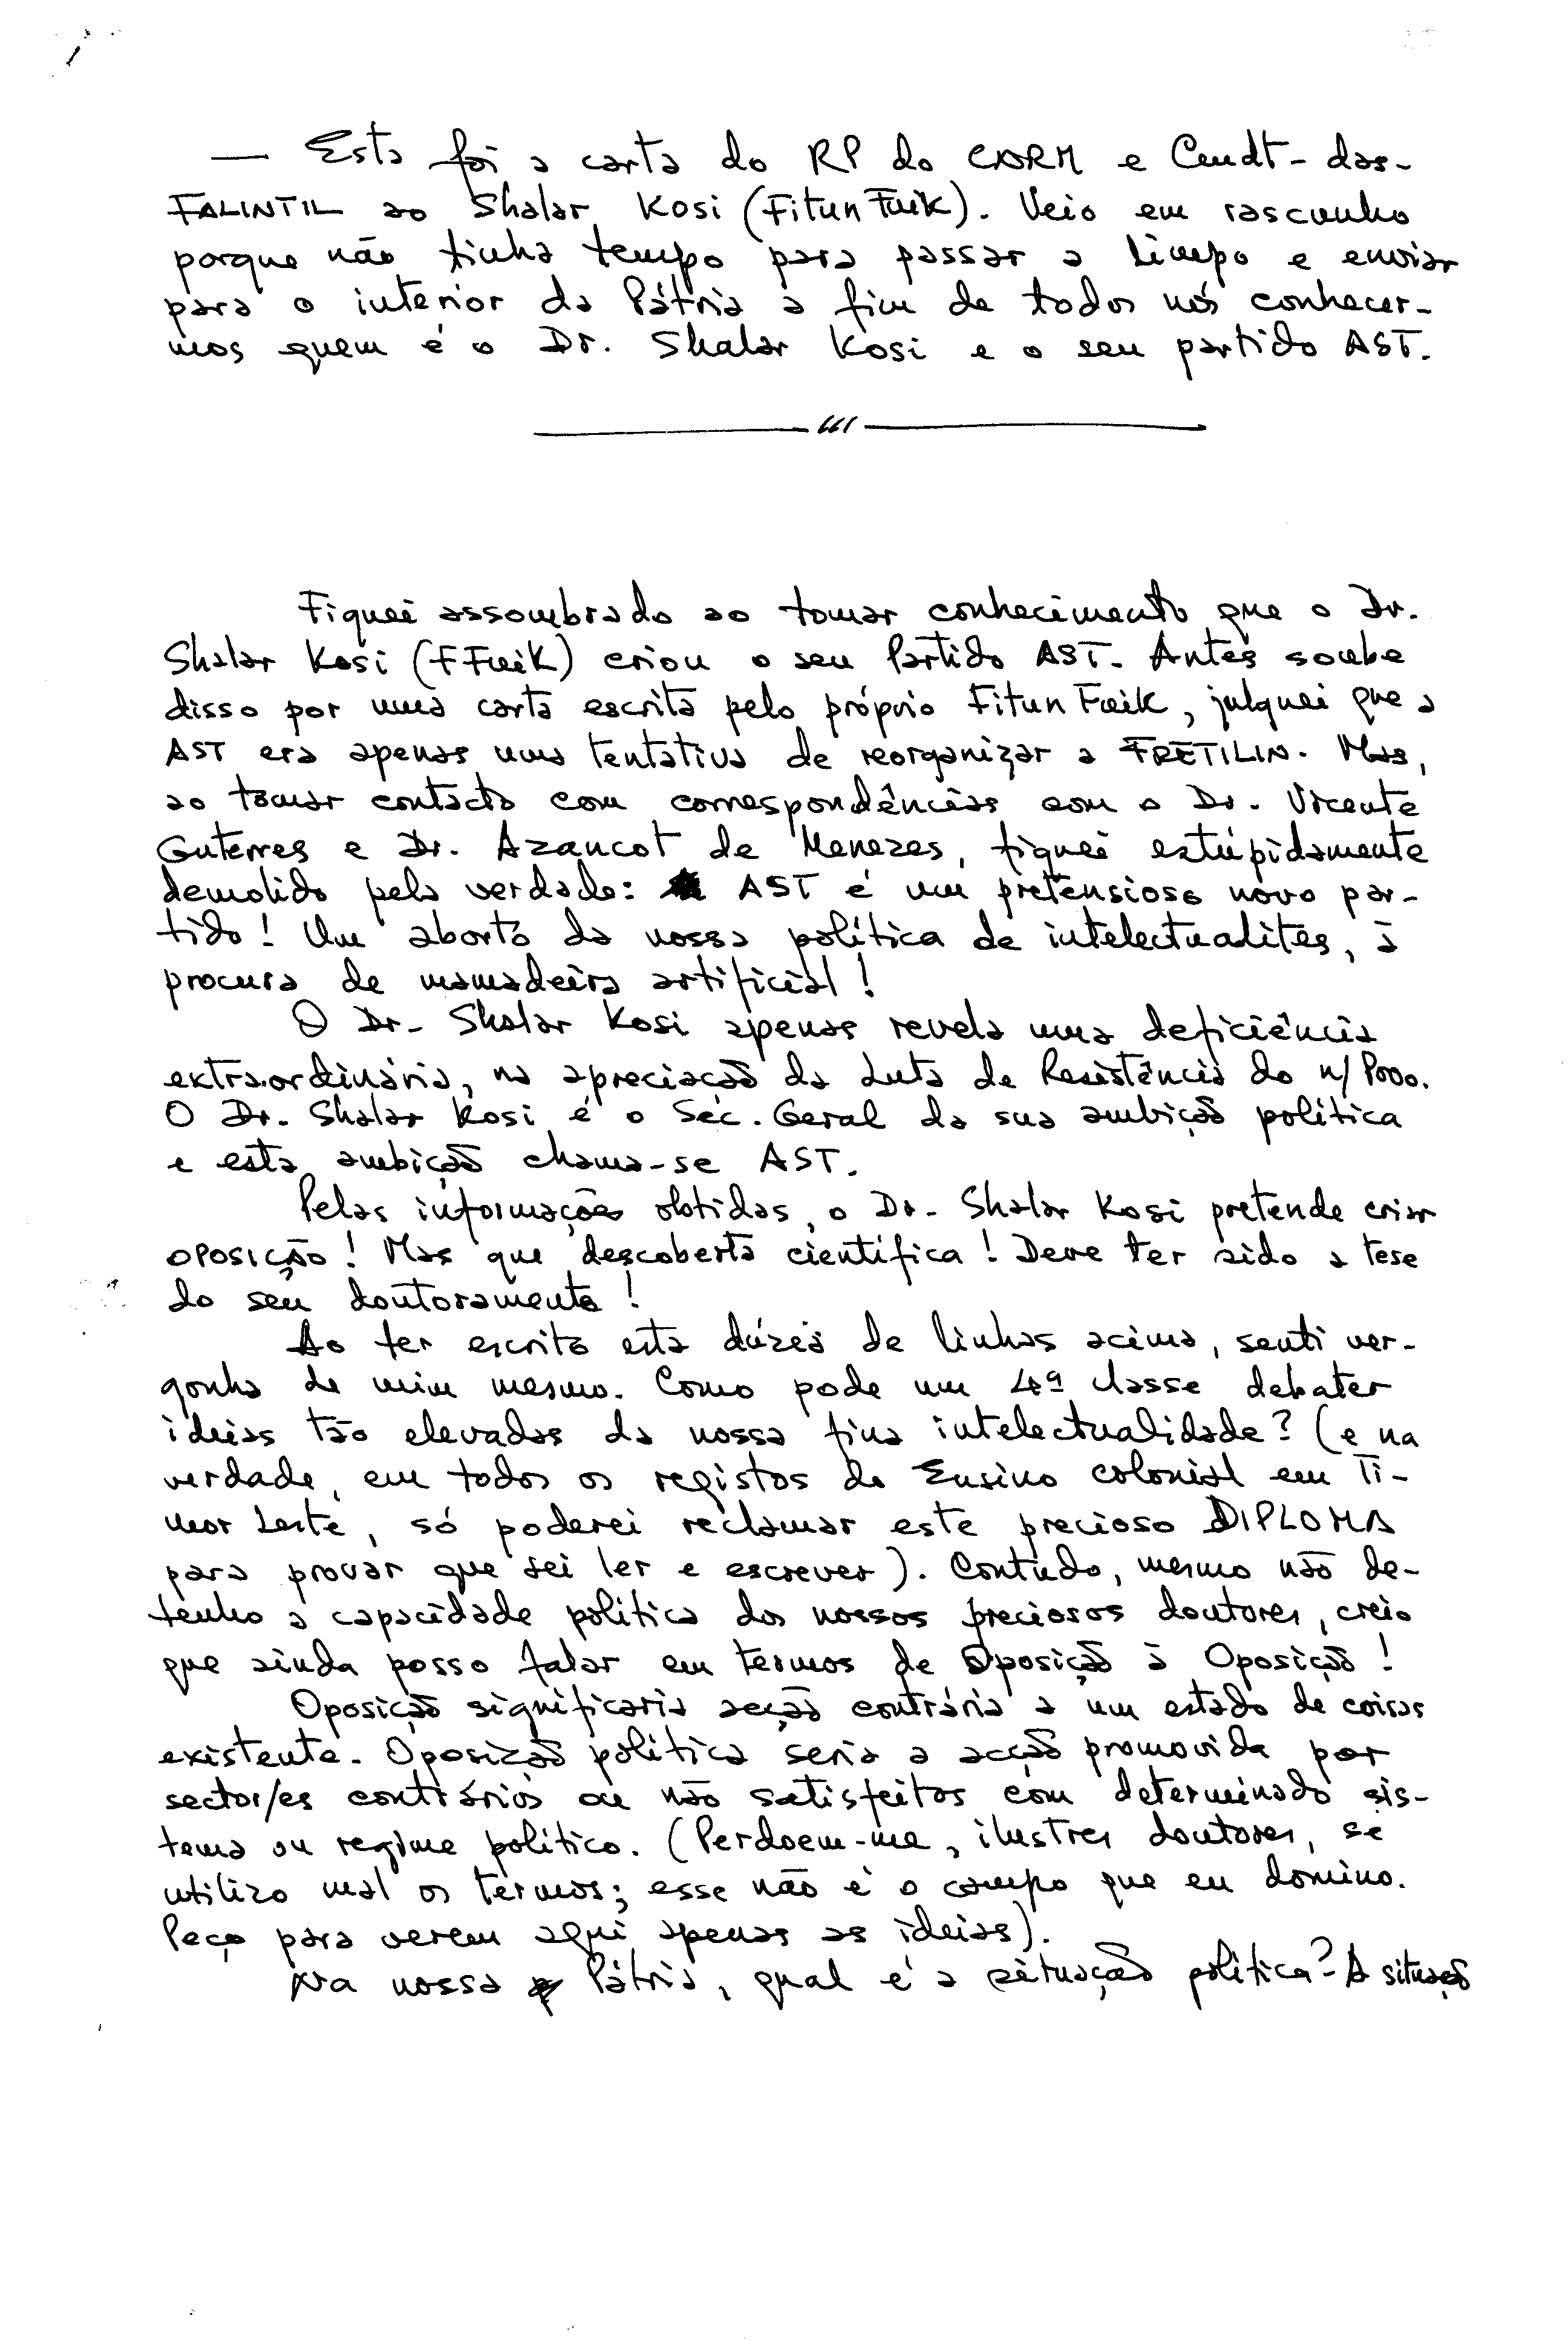 — Esta foi a carta do RP do CNRM e Cmdt- das-
FALINTIL ao Shalar Kosi (Fitun Fuik). Veio em rascunho
porque não tinha tempo para passar a limpo e enviar
para o interior da Pátria a fim de todos nós conhecer-
mos quem é o Dr. Shalar Kosi e o seu partido AST.
Fiquei assombrado ao tomar conhecimento que o Dr.
Shalar Kosi (FFuik) criou o seu Partido AST. Antes soube
disso por uma carta escrita pelo próprio Fitun Fuik, julguei que a
AST era apenas uma tentativa de reorganizar a FRETILIN. Mas,
ao tomar contacto com correspondências com o Dr. Vicente
Guterres e Dr. Azancot de Menezes, fiquei estúpidamente
demolido pela verdade: AST é um pretensioso novo par-
tido! Um aborto da nossa política de intelectualites, à
procura de mamadeira artificial!
O Dr. Shalar Kosi apenas revela uma deficiência
extraordinária, na apreciação da Luta de Resistência do n/ Povo.
O Dr. Shalar Kosi é o Sec. Geral da sua ambição política
e esta ambição chama-se AST.
Pelas informações obtidas, o Dr. Shalar Kosi pretende criar
OPOSIÇÃO! Mas que descoberta científica! Deve ter sido a tese
do seu doutoramento!
Ao ter escrito esta dúzia de linhas acima, senti ver-
gonha de mim mesmo. Como pode um 4ª classe debater
ideias tão elevadas da nossa fina intelectualidade? (e na
verdade, em todos os registos do Ensino colonial em Ti-
mor Leste, só poderei reclamar este precioso DIPLOMA
para provar que sei ler e escrever). Contudo, mesmo não de-
tenho a capacidade política dos nossos preciosos doutores, creio
que ainda posso falar em termos de Oposição à Oposição!
Oposição significaria acção contrária a um estado de coisas
existente. Oposição política seria a acção promovida por
sector/es contrários ou não satisfeitos com determinado sis-
tema ou regime político. (Perdoem-me, ilustres doutores, se
utilizo mal os termos; esse não é o campo que eu domino.
Peço para verem aqui apenas as ideias).
Na nossa Pátria, qual é a situação política? A situação